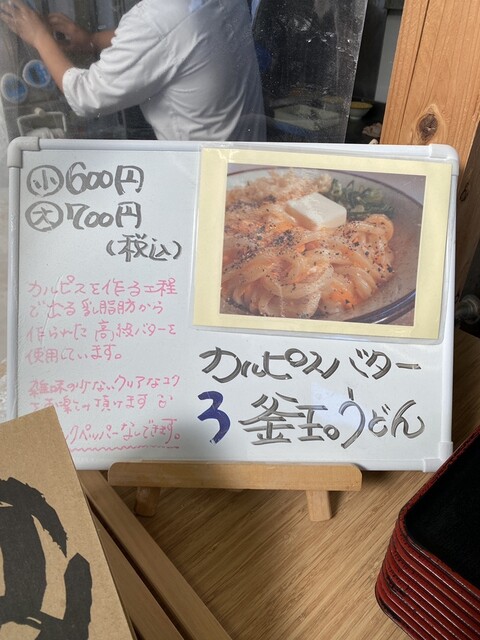 小 600円
大 700円
(税込)
カルピスを作る工程
で出る乳脂肪から
作られた高級バターを
使用しています。
雑味の少ないクリアなコク
ペッパーなしできます。
カルピスバター
3 釜玉うどん